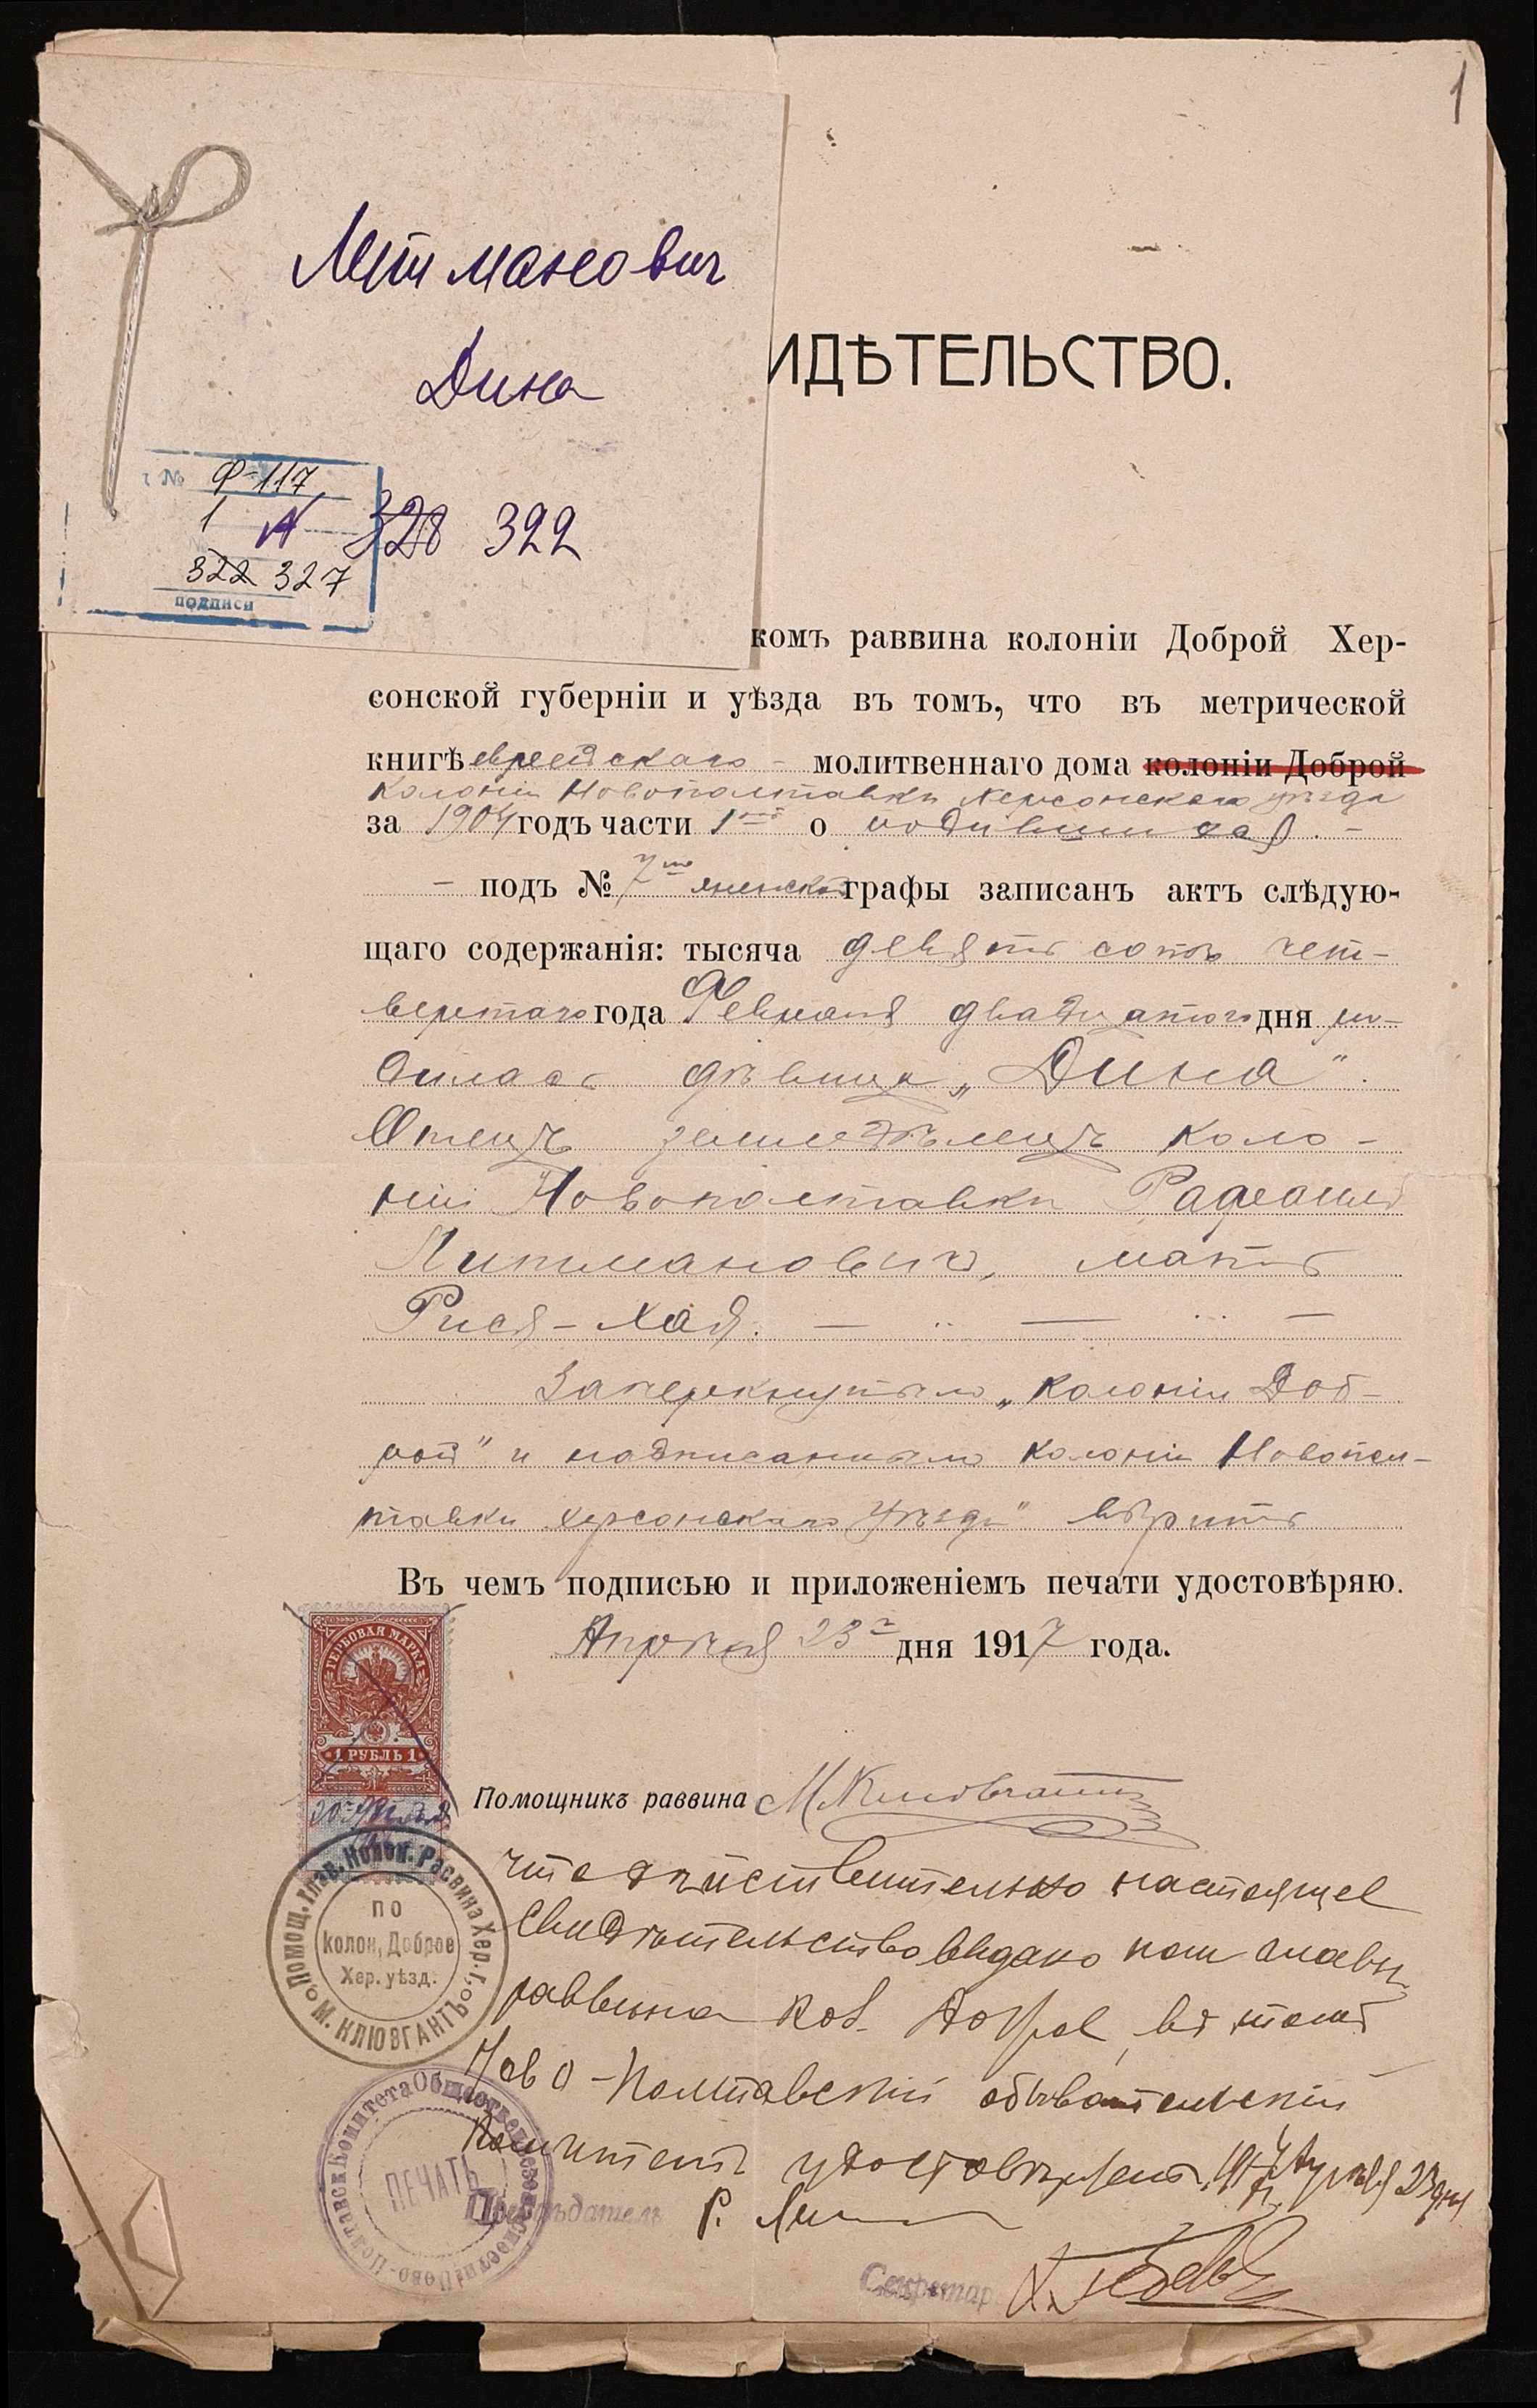 1
Липманович
Дина
№ Ф-117
1 А 328 322
322 327
подписи
ИДѢТЕЛЬСТВО.
комъ раввина колоніи Доброй Хер-
сонской губерніи и уѣзда въ томъ, что въ метрической
книгѣ еврейскаго - молитвеннаго дома колоніи Доброй
Колоніи Новополтавки Херсонскаго уѣзда
за 1904 годъ части 1ой о родившихся. -
- подъ № 7мъ женской графы записанъ актъ слѣдую-
щаго содержанія: тысяча девять сотъ чет-
вертаго года Февраля двадцатаго дня ро-
дилась дѣвица „Дина".
Отецъ земледѣлецъ коло-
ніи Новополтавки Рафаилъ
Липмановичъ, мать
Рися-Хая. —
Зачеркнутымъ „колоніи Доб-
рой" и надписаннымъ колоніи Новопол-
тавки Херсонскаго уѣзда" вѣрить
Въ чемъ подписью и приложеніемъ печати удостовѣряю.
Апрѣля 23го дня 1917 года.
ГЕРБОВАЯ МАРКА
1 РУБЛЬ 1
Помощникъ раввина М. Клювгантъ
Помощ. Глав. Колон. Раввина Хер. г.
по
колон. Доброе
Хер. уѣзд.
М. КЛЮВГАНТЪ
что дѣйствительно настоящее
свидѣтельство выдано пом. главн.
раввина кол. Доброе, въ томъ
Ново-Полтавскій обывательскій
Комитетъ удостовѣряетъ 1917 г. Апрѣля 23 дня
ПЕЧАТЬ
Ново-Полтавск Комитета Общественной
Предсѣдатель Р.
Секретарь